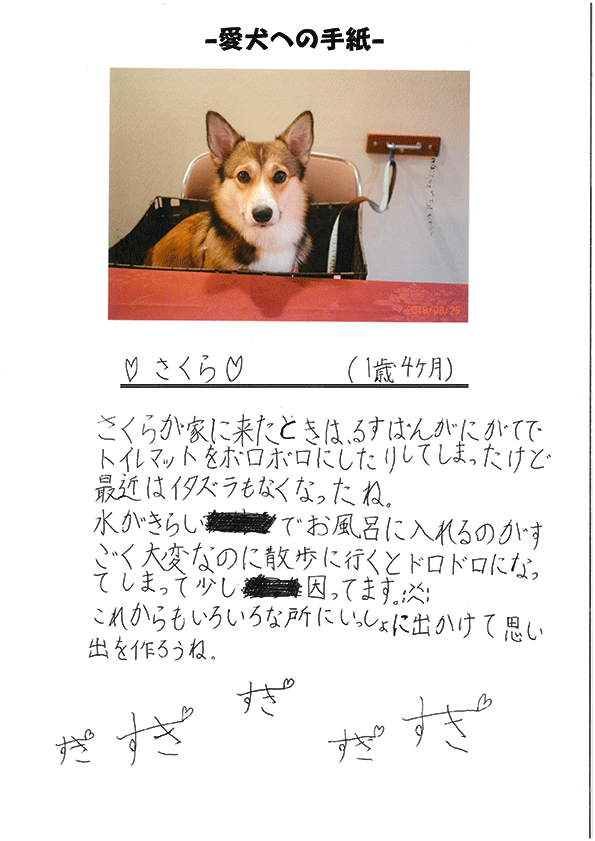 -愛犬への手紙-
2018/08/25
♡ さくら ♡ (1歳4ケ月)
さくらが家に来たときは、るすばんがにがてで
トイレマットをボロボロにしたりしてしまったけど
最近はイタズラもなくなったね。
水がきらい でお風呂に入れるのがす
ごく大変なのに散歩に行くとドロドロになっ
てしまって少し 困ってます。
これからもいろいろな所にいっしょに出かけて思い
出を作ろうね。
すき♡
すき♡
すき♡
すき♡
すき♡